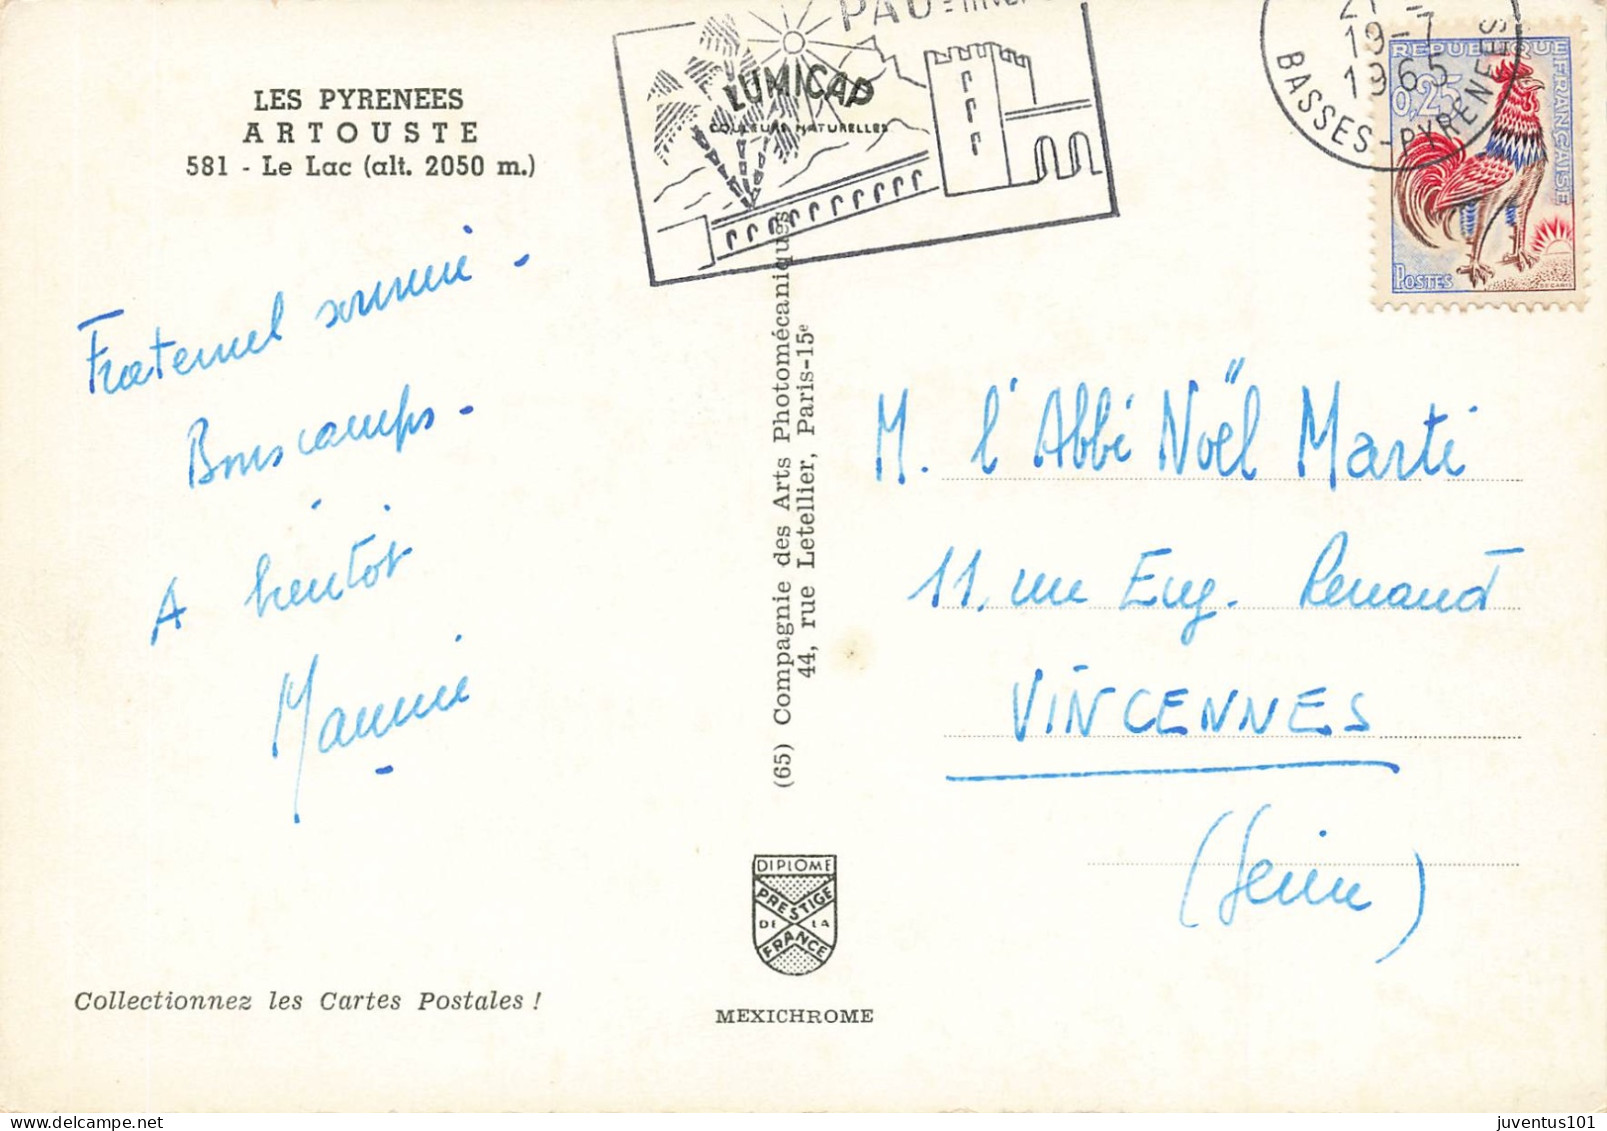 LES PYRENEES
ARTOUSTE
581 - Le Lac (alt. 2050 m.)
Fraternel souvenir -
Bons camps -
A bientôt
PAU
LUMICAP
COULEURS NATURELLES
21
19-7
1965
BASSES-PYRENEES
REPUBLIQUE FRANÇAISE
0,25
POSTES
DECARIS
(65) Compagnie des Arts Photomécaniques
44, rue Letellier, Paris-15e
M. l'Abbé Noël Marti
11, rue Eug. Renaud
VINCENNES
(Seine)
DIPLOME
PRESTIGE
DE LA
FRANCE
Collectionnez les Cartes Postales !
MEXICHROME
juventus101